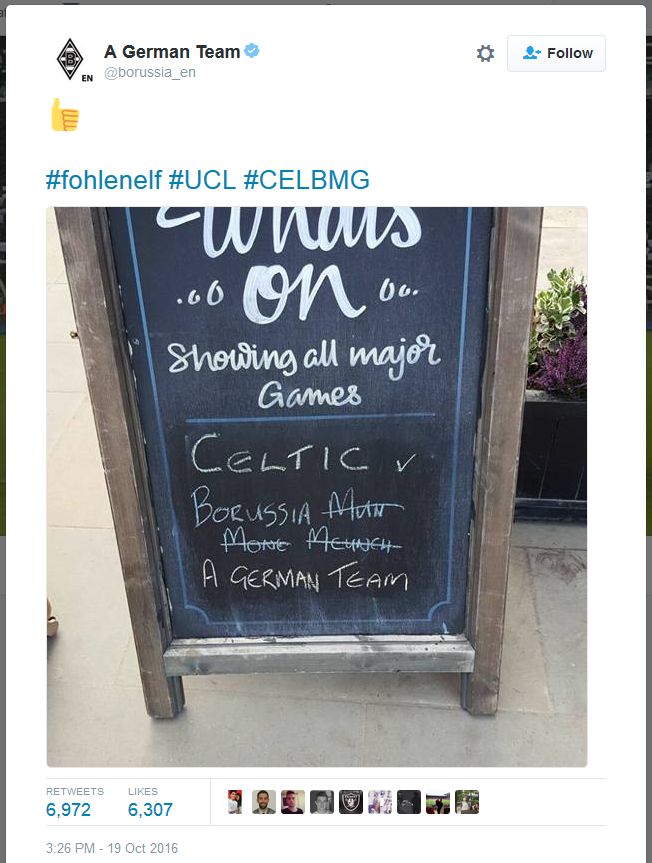 A German Team
@borussia_en
Follow
B
EN
#fohlenelf #UCL #CELBMG
Whats
on
Showing all major
Games
CELTIC ✓
BORUSSIA MUN
MONC MEUNCH
A GERMAN TEAM
RETWEETS LIKES
6,972 6,307
3:26 PM - 19 Oct 2016